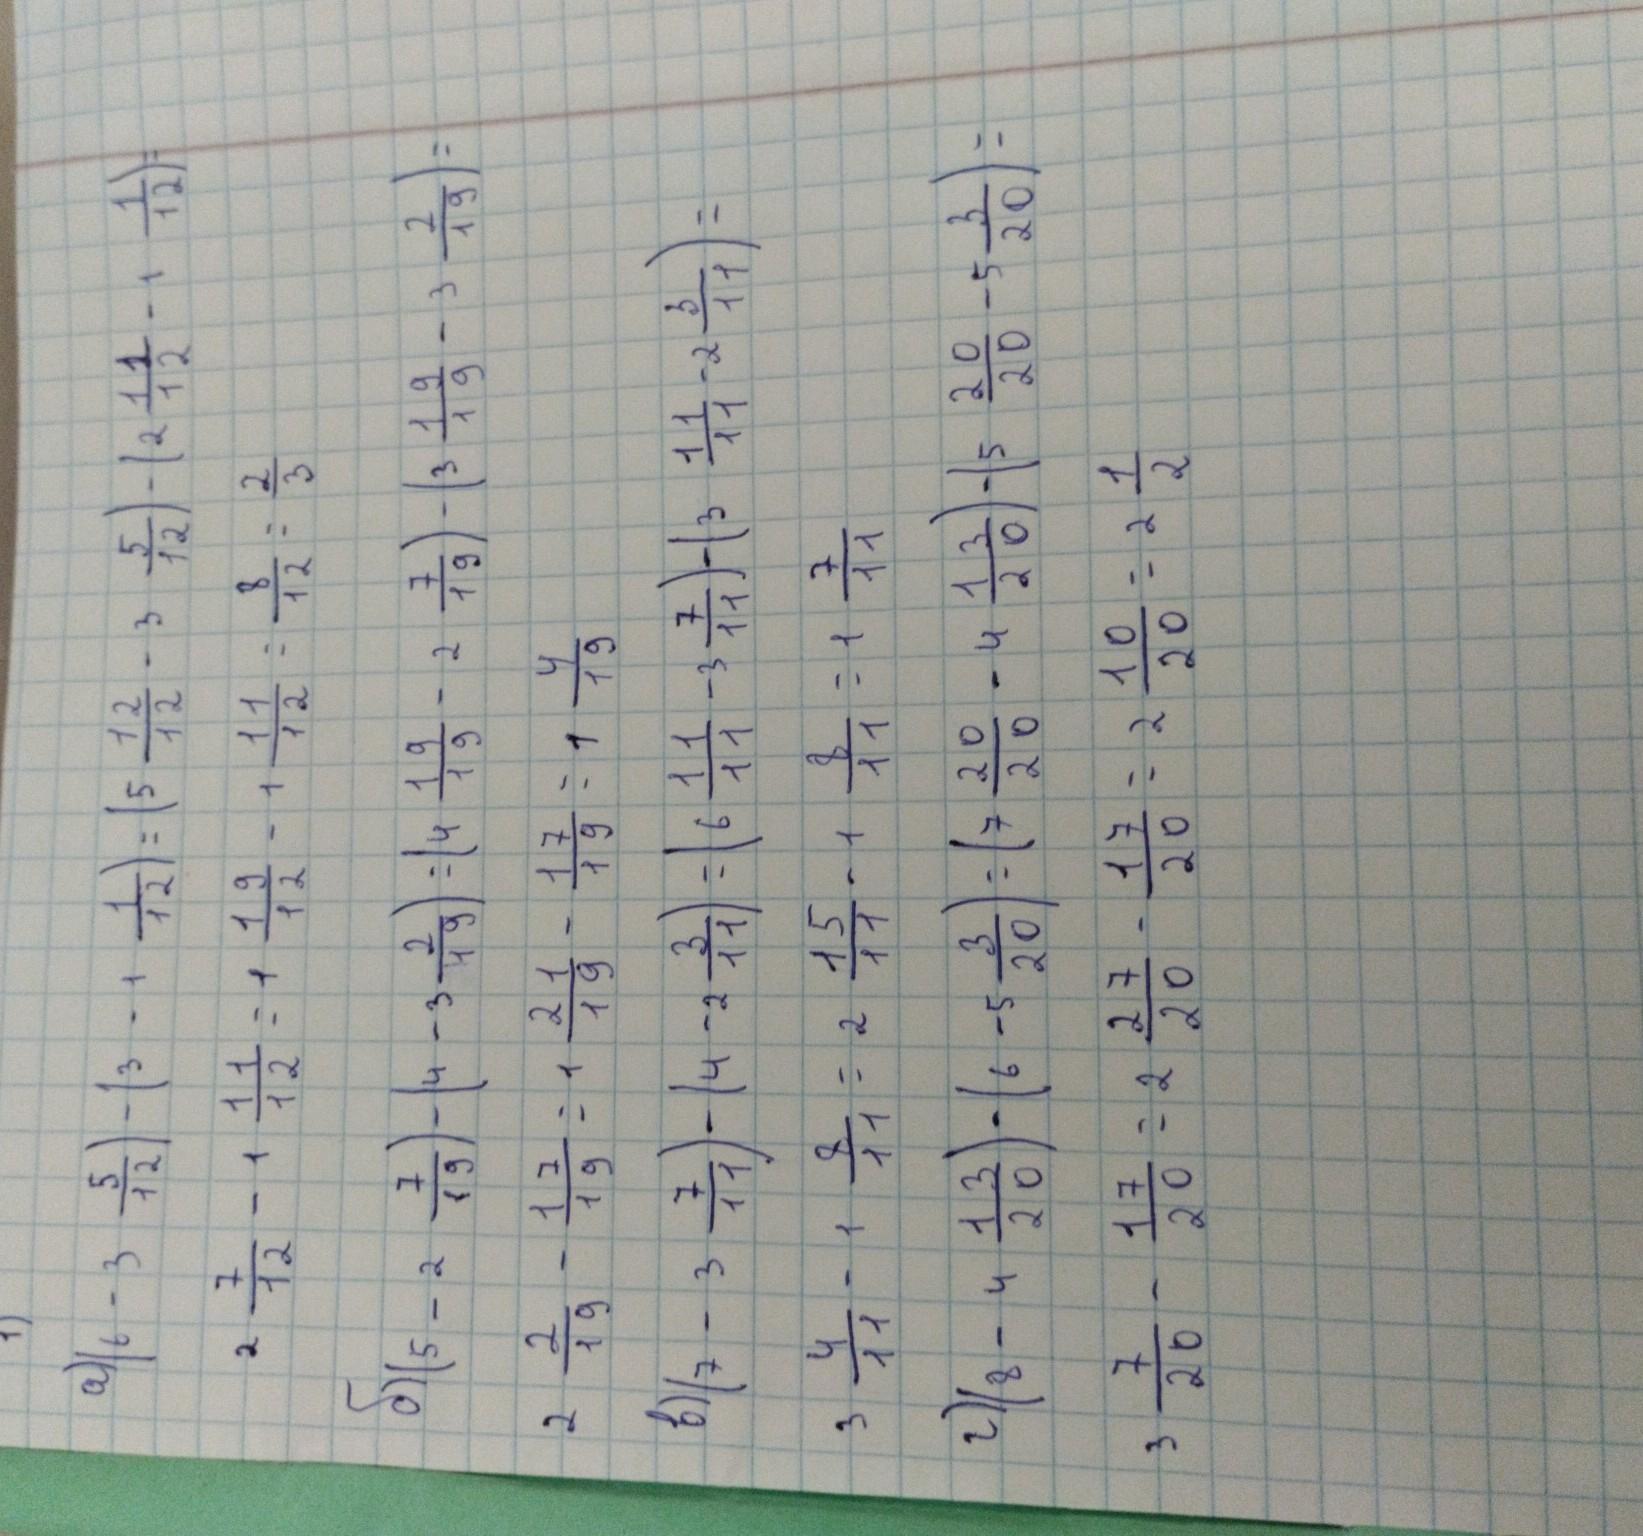 1)
а) (6 - 3 5/12) - (3 - 1 1/12) = (5 12/12 - 3 5/12) - (2 11/12 - 1 1/12) =
2 7/12 - 1 11/12 = 1 19/12 - 1 11/12 = 8/12 = 2/3
б) (5 - 2 7/19) - (4 - 3 2/19) = (4 19/19 - 2 7/19) - (3 19/19 - 3 2/19) =
2 2/19 - 17/19 = 1 21/19 - 17/19 = 1 4/19
в) (7 - 3 7/11) - (4 - 2 3/11) = (6 11/11 - 3 7/11) - (3 11/11 - 2 3/11) =
3 4/11 - 1 8/11 = 2 15/11 - 1 8/11 = 1 7/11
г) (8 - 4 13/20) - (6 - 5 3/20) = (7 20/20 - 4 13/20) - (5 20/20 - 5 3/20) =
3 7/20 - 17/20 = 2 27/20 - 17/20 = 2 10/20 = 2 1/2